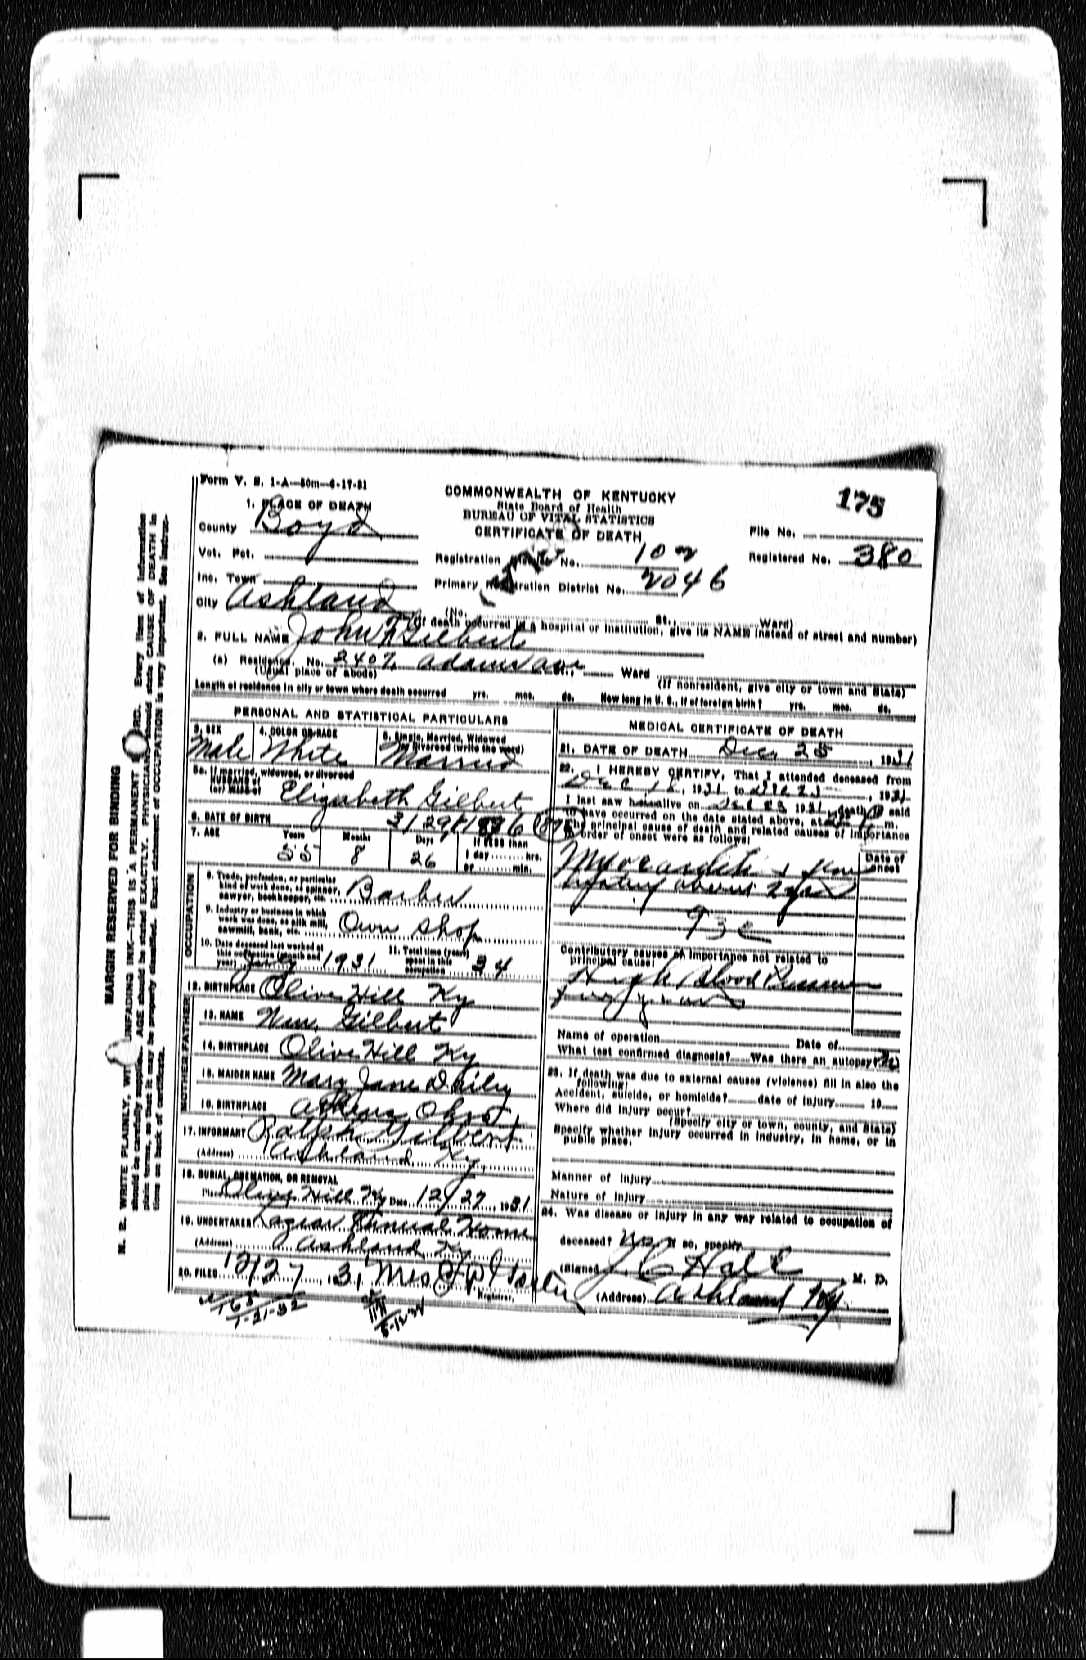 Form V. S. 1-A—50m—6-17-31
175
COMMONWEALTH OF KENTUCKY
State Board of Health
BUREAU OF VITAL STATISTICS
CERTIFICATE OF DEATH
1. PLACE OF DEATH
County Boyd
File No.
Registered No. 380
Vot. Pct.
Registration No. 102
Inc. Town
Primary Registration District No. 2046
City Ashland
(No. St., Ward)
(If death occurred in a hospital or institution, give its NAME instead of street and number)
2. FULL NAME John Gilbert
(a) Residence. No. 2407 Adams Ave St., Ward
(Usual place of abode) (If nonresident, give city or town and State)
Length of residence in city or town where death occurred yrs. mos. ds. How long in U. S., if of foreign birth? yrs. mos. ds.
PERSONAL AND STATISTICAL PARTICULARS
3. SEX Male
4. COLOR OR RACE White
5. Single, Married, Widowed or Divorced (write the word) Married
5a. If married, widowed, or divorced
HUSBAND of
(or) WIFE of Elizabeth Gilbert
6. DATE OF BIRTH 3/29/1876
7. AGE Years 55 Months 8 Days 26 If LESS than
1 day hrs.
or min.
OCCUPATION
8. Trade, profession, or particular kind of work done, as spinner, sawyer, bookkeeper, etc. Barber
9. Industry or business in which work was done, as silk mill, sawmill, bank, etc. Own Shop
10. Date deceased last worked at this occupation (month and year) July 1931
11. Total time (years) spent in this occupation 34
12. BIRTHPLACE Olive Hill Ky
FATHER
13. NAME Wm. Gilbert
14. BIRTHPLACE Olive Hill Ky
MOTHER
15. MAIDEN NAME Mary Jane
16. BIRTHPLACE Athens Ohio
17. INFORMANT Ralph Gilbert
(Address) Ashland Ky.
18. BURIAL, CREMATION, OR REMOVAL
Place Olive Hill Ky Date 12/27, 1931
19. UNDERTAKER Funeral Home
(Address) Ashland Ky
20. FILED 12/27, 31 Mrs
Registrar.
1-21-32
MEDICAL CERTIFICATE OF DEATH
21. DATE OF DEATH Dec 25, 1931
22. I HEREBY CERTIFY, That I attended deceased from
Dec 18, 1931 to Dec 25, 1931
I last saw him alive on Dec 1931, death is said
to have occurred on the date stated above, at m.
The principal cause of death and related causes of importance
in order of onset were as follows:
Date of onset
about 2 years
93c
Contributory causes of importance not related to
principal cause:
High Blood Pressure
Name of operation Date of
What test confirmed diagnosis? Was there an autopsy? No
23. If death was due to external causes (violence) fill in also the
following:
Accident, suicide, or homicide? date of injury 19
Where did injury occur?
(Specify city or town, county, and State)
Specify whether injury occurred in industry, in home, or in
public place.
Manner of injury
Nature of injury
24. Was disease or injury in any way related to occupation of
deceased? No If so, specify
(Signed) J C Hall M. D.
(Address) Ashland Ky.
MARGIN RESERVED FOR BINDING
N. B. WRITE PLAINLY, WITH UNFADING INK—THIS IS A PERMANENT RECORD. Every item of information
should be carefully supplied. AGE should be stated EXACTLY. PHYSICIANS should state CAUSE OF DEATH in
plain terms, so that it may be properly classified. Exact statement of OCCUPATION is very important. See instruc-
tions on back of certificate.